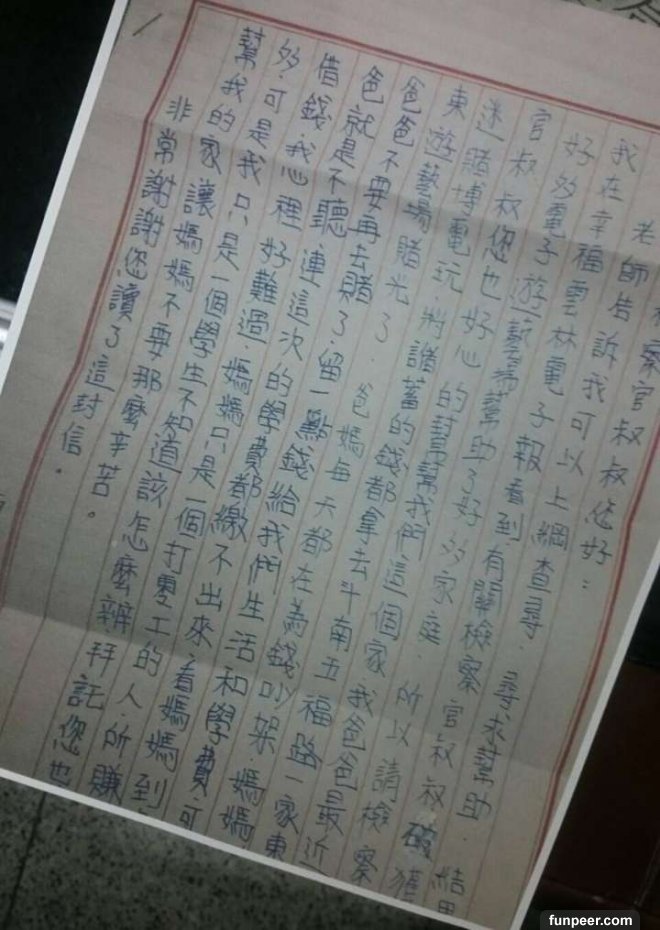 察官叔叔您好：
老師告訴我可以上網查尋.尋求幫助.結
我在幸福雲林電子報看到有關檢察官叔叔破獲
好多電子遊藝場幫助了好多家庭.所以請檢察
官叔叔您也好心的幫幫我們這個家我爸爸最近
迷賭博電玩 將諸蓄的錢都拿去斗南五福路一家東
東遊藝場賭光了.爸媽每天都在為錢吵架 媽媽
爸爸不要再去賭了.留一點錢給我們生活和學費可
爸就是不聽 連這次的學費都繳不出來.看媽媽到
借錢.我心裡好難過.媽媽只是一個打零工的人.所賺
多.可是我只是一個學生不知道該怎麼辦.拜託您也
幫我的家讓媽媽不要那麼辛苦。
非常謝謝您讀了這封信。
funpeer.com